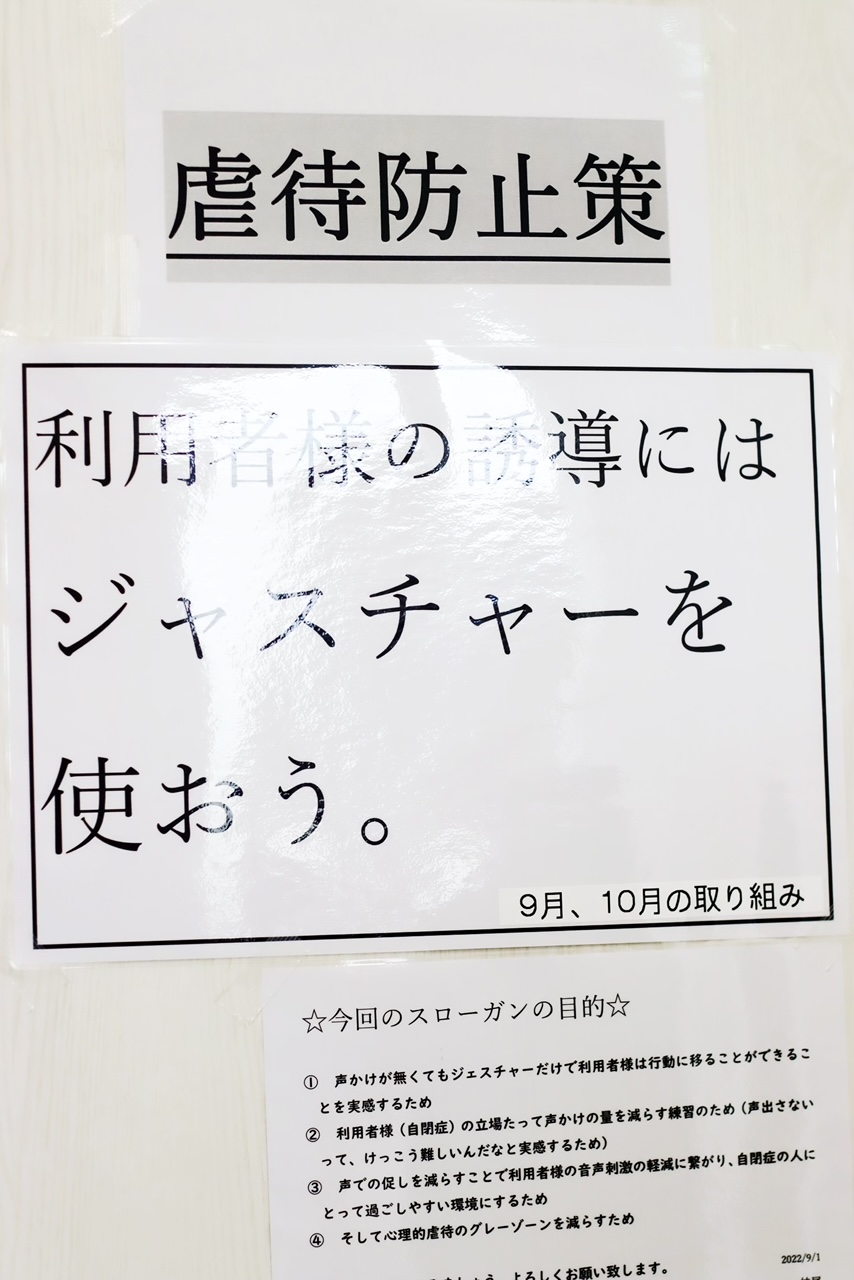 虐待防止策
利用者様の誘導には
ジャスチャーを
使おう。
9月、10月の取り組み
☆今回のスローガンの目的☆
① 声かけが無くてもジェスチャーだけで利用者様は行動に移ることができるこ
とを実感するため
② 利用者様（自閉症）の立場たって声かけの量を減らす練習のため（声出さない
って、けっこう難しいんだなと実感するため）
③ 声での促しを減らすことで利用者様の音声刺激の軽減に繋がり、自閉症の人に
とって過ごしやすい環境にするため
④ そして心理的虐待のグレーゾーンを減らすため
2022/9/1
ましょう。よろしくお願い致します。